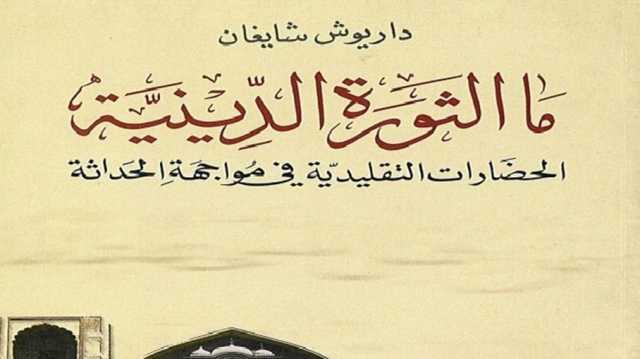 داريوش شايغان
مَا الثورَة الدِّينيَّة
الحضَارات التقليديّة في مُواجهَة الحَداثة